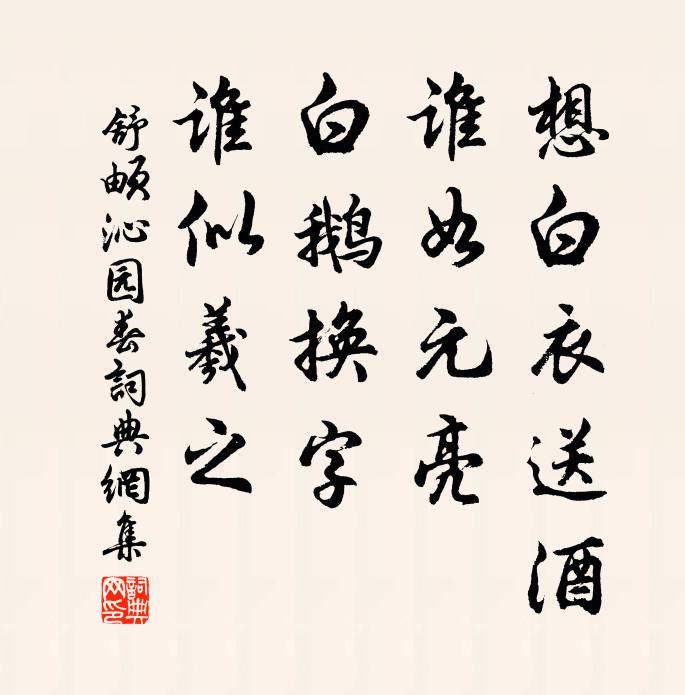 想白衣送酒
谁如元亮
白鹅换字
谁似羲之
舒頔沁园春詞典網集
詞典网印